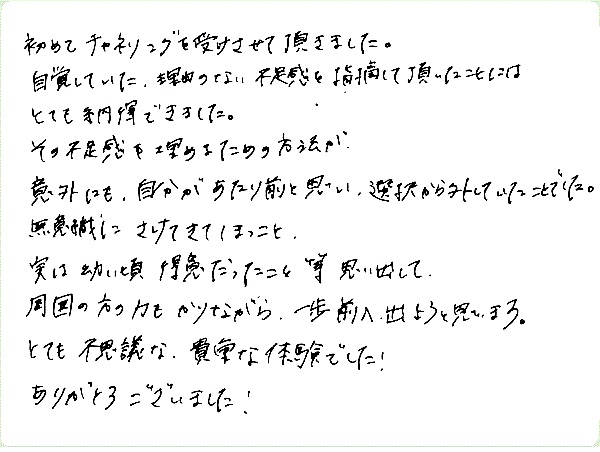 初めてチャネリングを受けさせて頂きました。
自覚していた、理由のない不足感を指摘して頂いたことには
とても納得できました。
その不足感を埋めるための方法が
意外にも、自分があたり前と思い、選択から外していたことでした。
無意識にさけてきてしまったこと、
実は幼い頃得意だったこと等思い出して、
周囲の方の力もかりながら、一歩前へ出ようと思います。
とても不思議な、貴重な体験でした!
ありがとうございました!